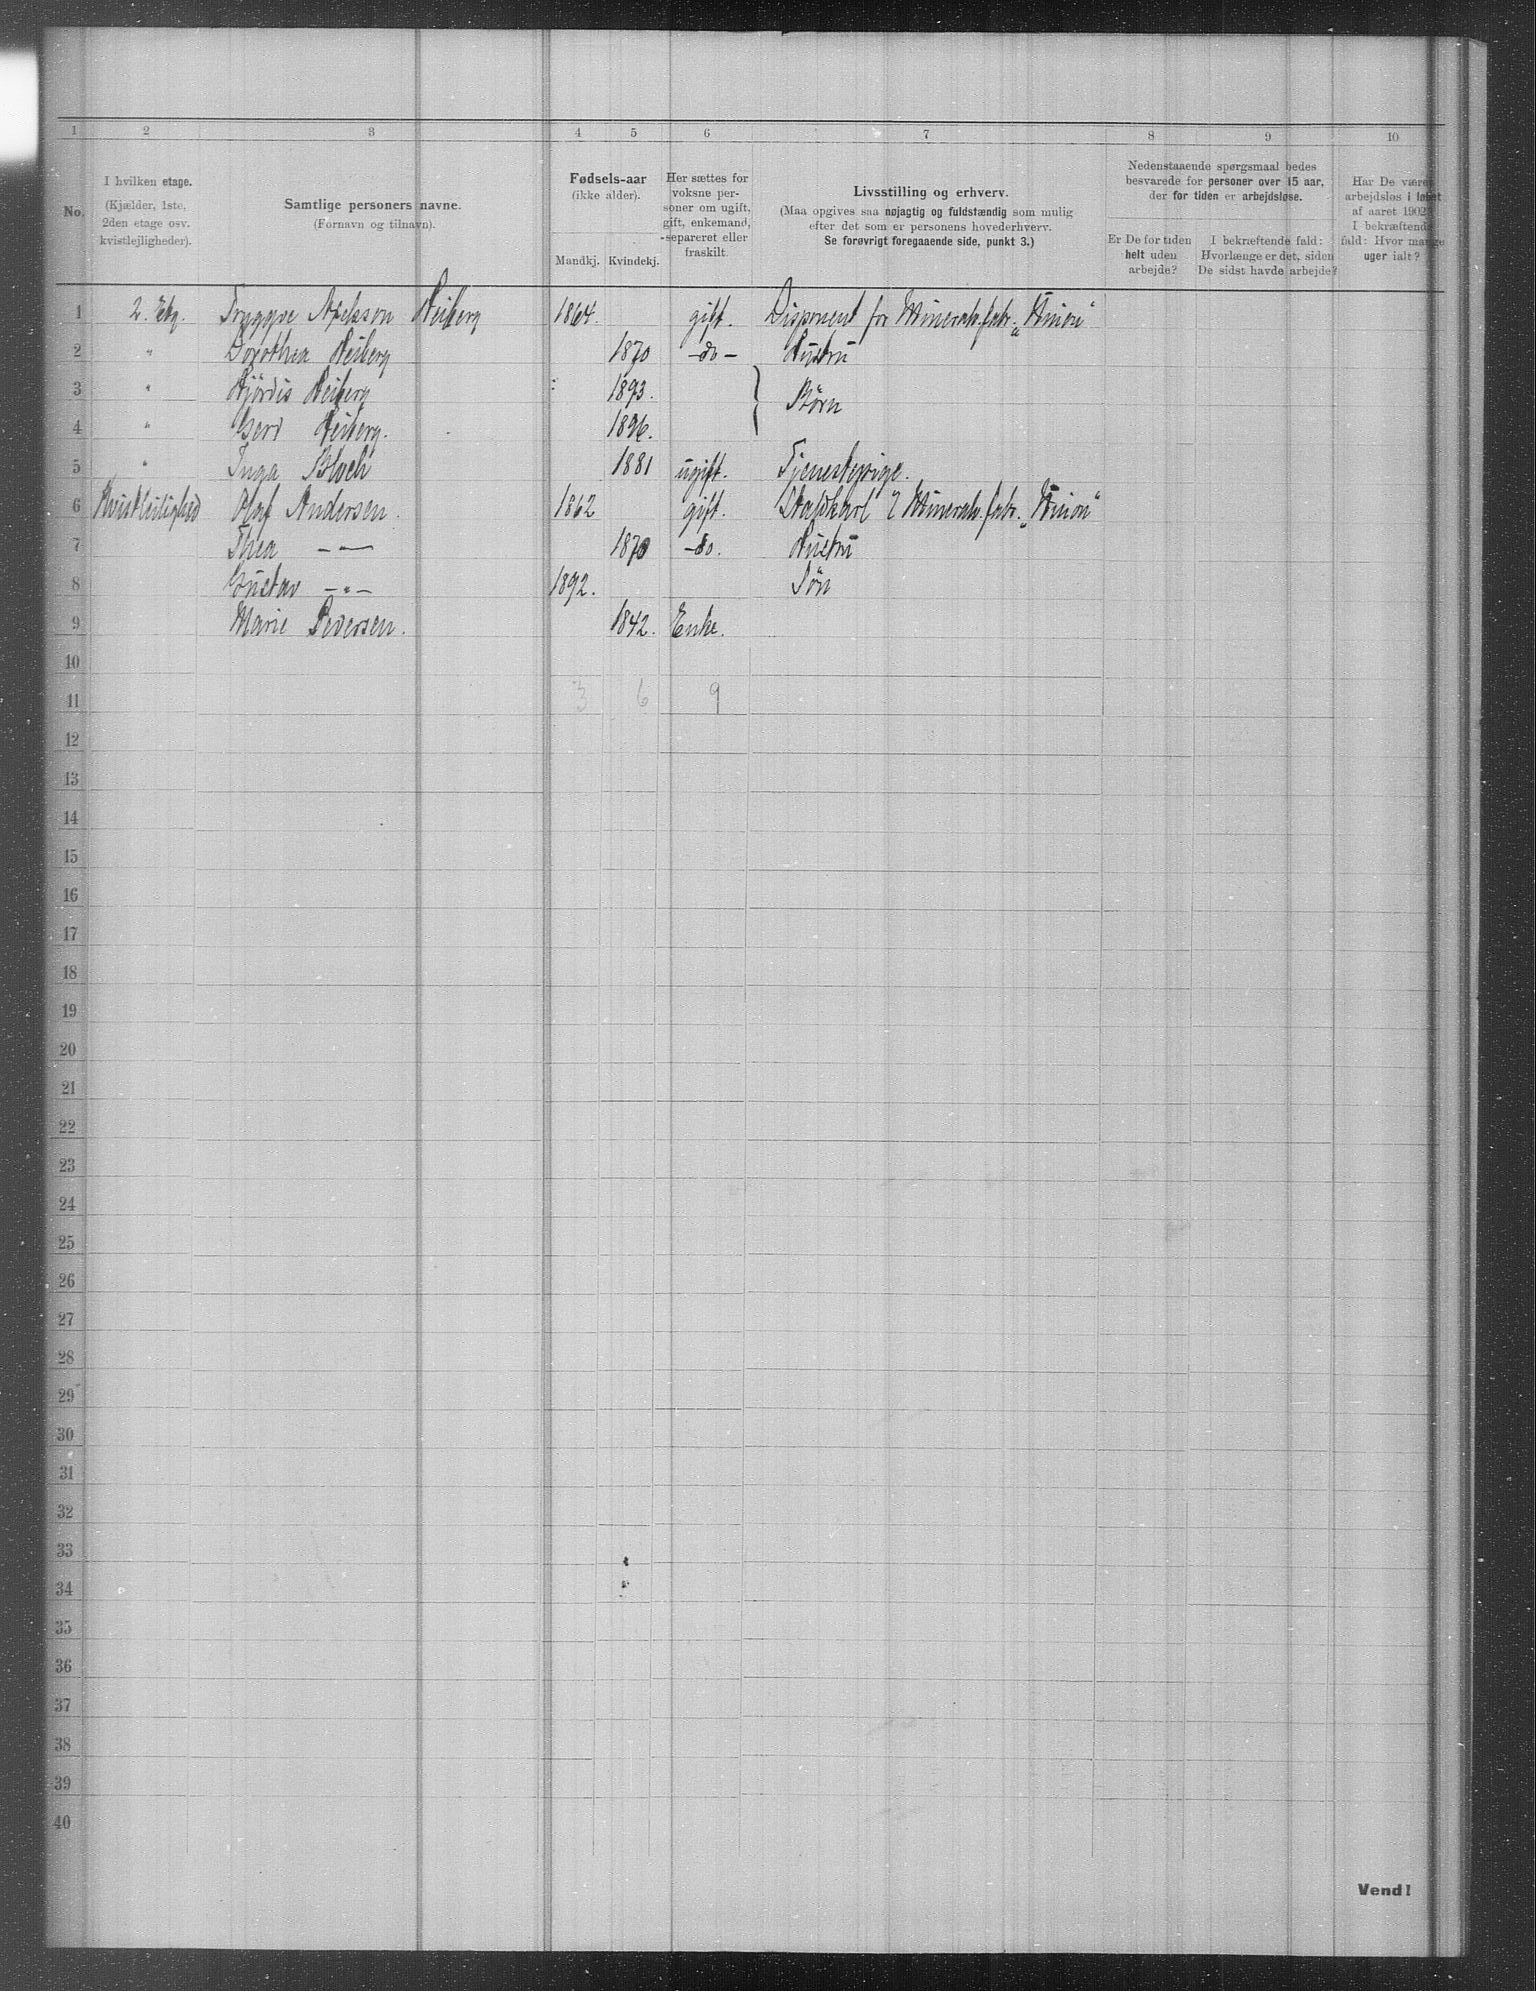 1 2 3 4 5 6 7 8 9 10
No.
I hvilken etage.
(Kjælder, 1ste,
2den etage osv.
kvistlejligheder).
Samtlige personers navne.
(Fornavn og tilnavn).
Fødsels-aar
(ikke alder).
Mandkj. Kvindekj.
Her sættes for
voksne per-
soner om ugift,
gift, enkemand,
separeret eller
fraskilt.
Livsstilling og erhverv.
(Maa opgives saa nøjagtig og fuldstændig som mulig
efter det som er personens hovederhverv.
Se forøvrigt foregaaende side, punkt 3.)
Nedenstaaende spørgsmaal bedes
besvarede for personer over 15 aar,
der for tiden er arbejdsløse.
Er De for tiden
helt uden
arbejde?
I bekræftende fald:
Hvorlænge er det, siden
De sidst havde arbejde?
Har De været
arbejdsløs i løbet
af aaret 1902?
I bekræftende
fald: Hvor mange
uger ialt?
1 2. Etg. Tryggve Axelsson Heiberg 1864. gift. Disponent for Mineralv.fabr. „Union"
2 " Dorothea Heiberg 1870 -do- Hustru
3 " Hjördis Heiberg 1893. } Børn
4 " Gerd Heiberg. 1896.
5 " Inga Bloch 1881 ugift. Tjenestepige.
6 Kvistleilighed Olaf Andersen. 1862 gift. Staldkarl i Mineralv.fabr. „Union"
7 Thea -"- 1870 -do. Hustru
8 Gustav -"- 1892. Søn
9 Marie Pedersen. 1842. Enke.
10
11 3 6 9
12
13
14
15
16
17
18
19
20
21
22
23
24
25
26
27
28
29
30
31
32
33
34
35
36
37
38
39
40
Vend!